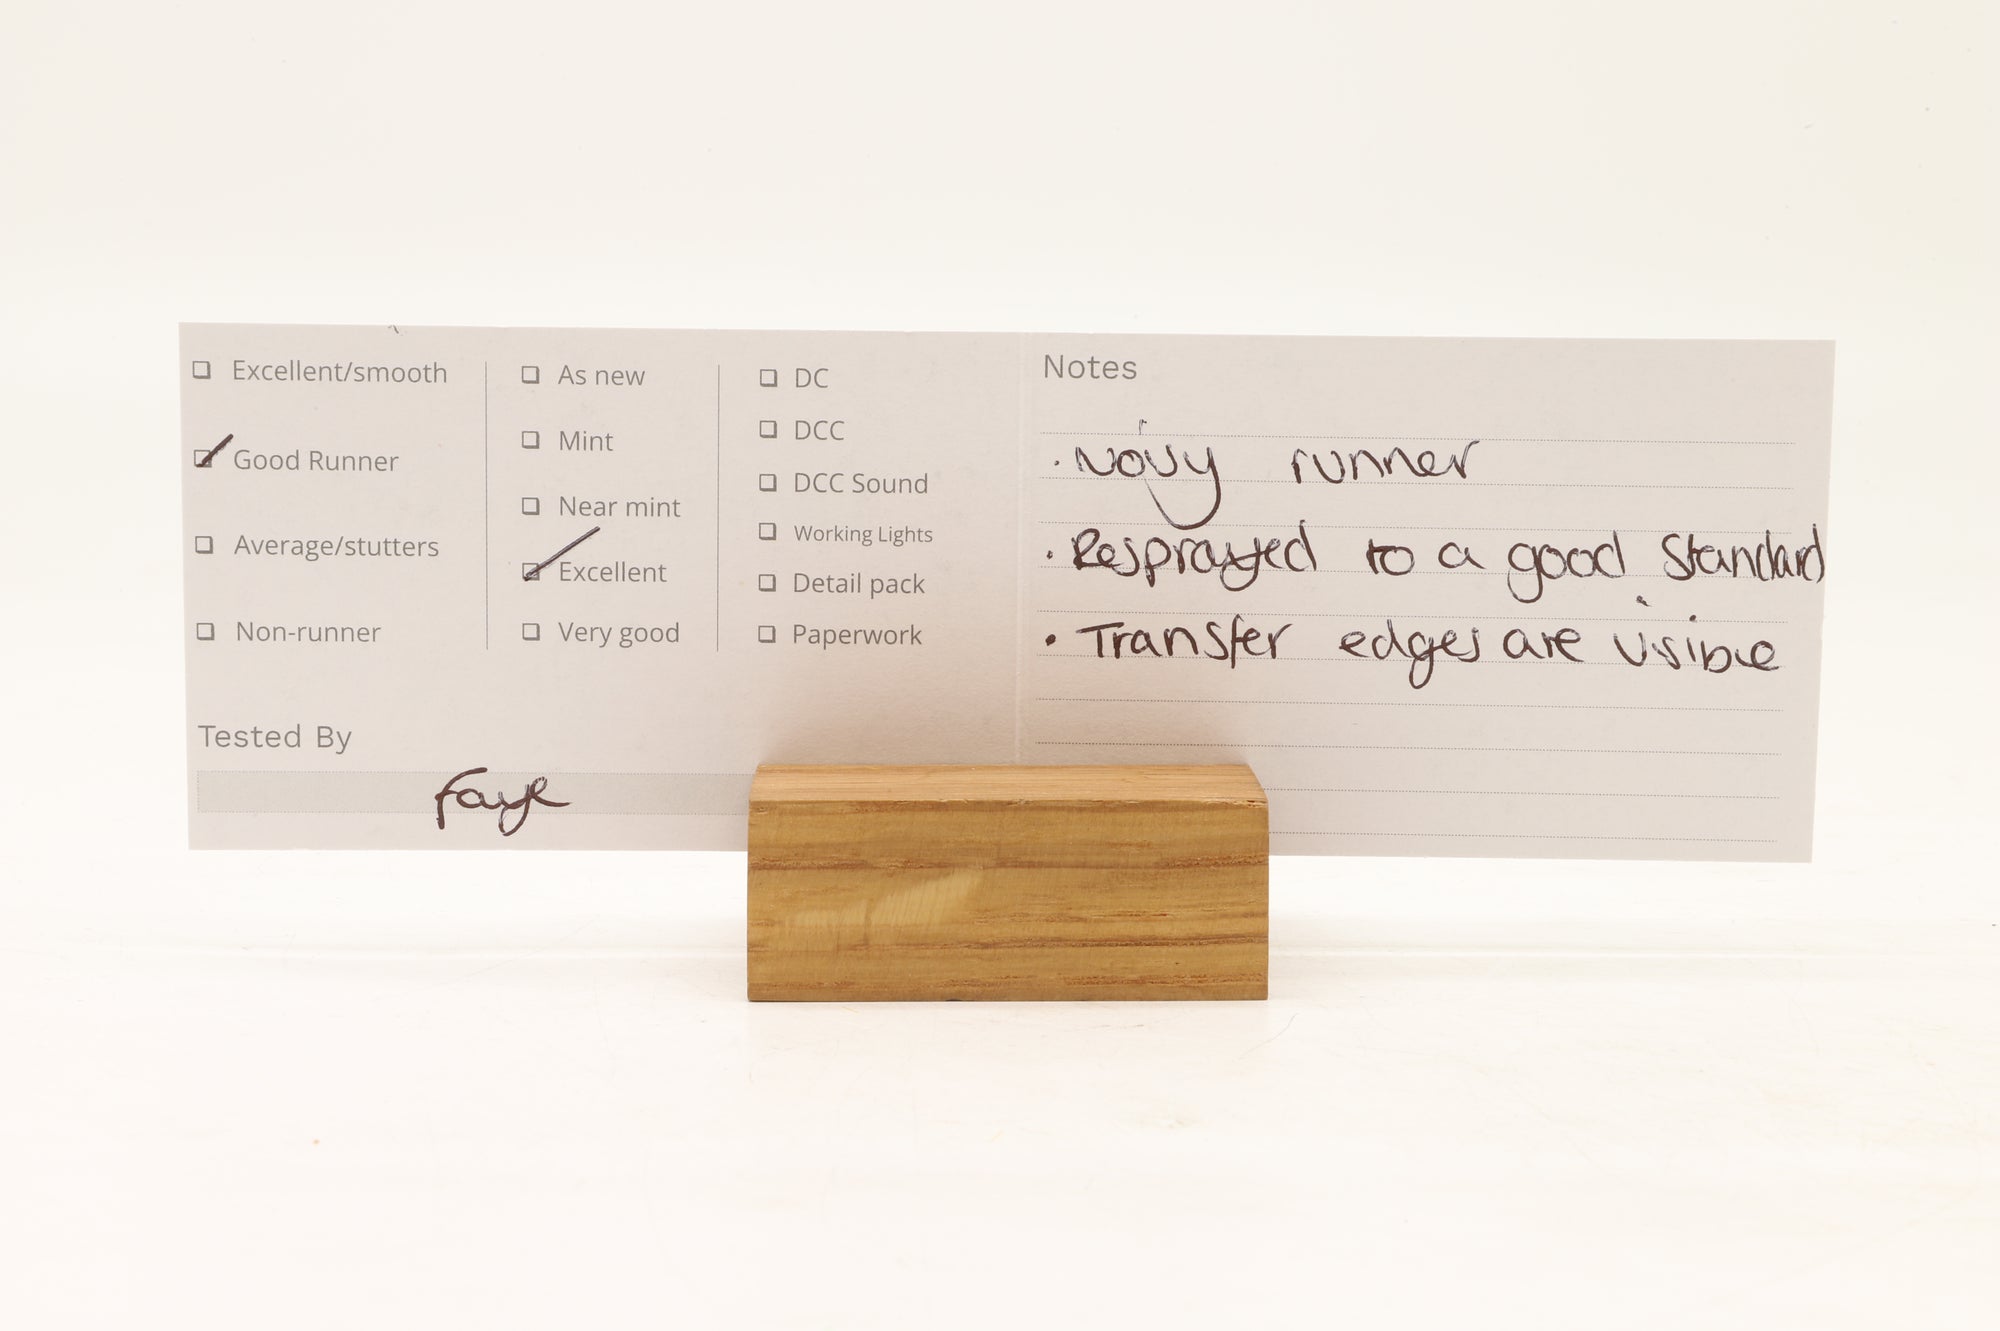 Excellent/smooth
Good Runner
Average/stutters
Non-runner
As new
Mint
Near mint
Excellent
Very good
DC
DCC
DCC Sound
Working Lights
Detail pack
Paperwork
Tested By
Faye
Notes
· Noisy runner
· Resprayed to a good Standard
· Transfer edges are visible